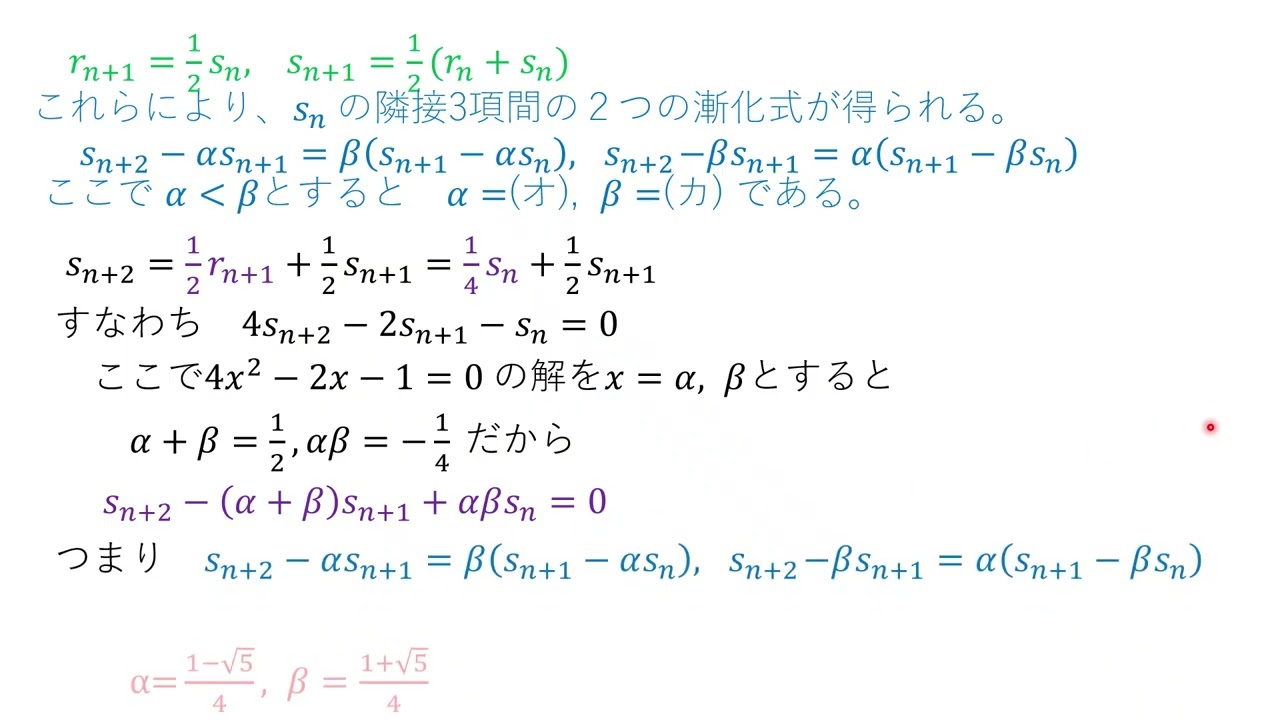 r_{n+1} = \frac{1}{2} s_n, s_{n+1} = \frac{1}{2}(r_n + s_n)
これらにより、s_n の隣接3項間の２つの漸化式が得られる。
s_{n+2} − αs_{n+1} = β(s_{n+1} − αs_n), s_{n+2} − βs_{n+1} = α(s_{n+1} − βs_n)
ここで α < βとすると α =(オ), β =(カ) である。
s_{n+2} = \frac{1}{2} r_{n+1} + \frac{1}{2} s_{n+1} = \frac{1}{4} s_n + \frac{1}{2} s_{n+1}
すなわち 4s_{n+2} − 2s_{n+1} − s_n = 0
ここで4x^2 − 2x − 1 = 0 の解をx = α, βとすると
α + β = \frac{1}{2}, αβ = −\frac{1}{4} だから
s_{n+2} − (α + β)s_{n+1} + αβs_n = 0
つまり s_{n+2} − αs_{n+1} = β(s_{n+1} − αs_n), s_{n+2} − βs_{n+1} = α(s_{n+1} − βs_n)
α= \frac{1−√5}{4}, β = \frac{1+√5}{4}